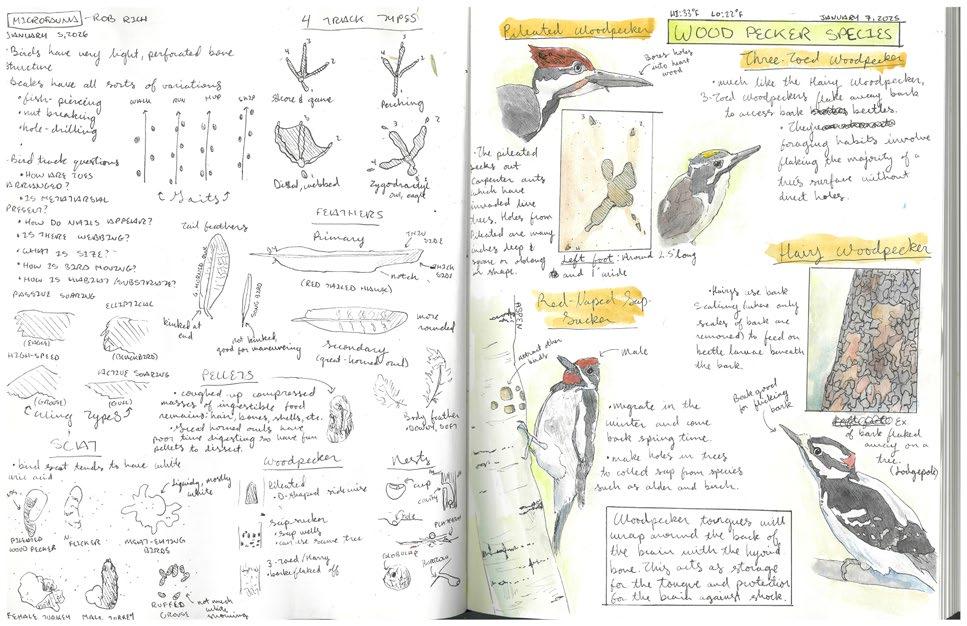 MICROFAUNA - ROB RICH
JANUARY 5, 2026
• Birds have very light, perforated bone
structure
Beaks have all sorts of variations
• fish-piercing
• nut breaking
• hole-drilling
• Bird track questions
• HOW ARE TOES
ARRANGED?
• IS METATARSAL
PRESENT?
• HOW DO NAILS APPEAR?
• IS THERE WEBBING?
• WHAT IS SIZE?
• HOW IS BIRD MOVING?
• HOW IS HABITAT/SUBSTRATE?
WALK RUN HOP SKIP
Gaits
4 TRACK TYPES
4 3 2
4 3 2
Shore & game
Perching
3 2
Distal, webbed
Zygodactyl
owl, eagle
FEATHERS
Tail feathers
kinked at
end
SONG BIRD
not kinked,
good for maneuvering
Primary
THIN
SIDE
THICK
SIDE
notch
(RED TAILED HAWK)
more
rounded
Secondary
(great-horned owl)
Body feather
• Down, soft
PASSIVE SOARING
ELLIPTICAL
(EAGLE)
(BLACKBIRD)
HIGH-SPEED
ACTIVE SOARING
(GROUSE)
(GULL)
Wing Types
PELLETS
• coughed up compressed
masses of ingestible food
remains: hair, bones, shells, etc.
• Great horned owls have
poor time digesting so have fun
pellets to dissect.
SCAT
• bird scat tends to have white
uric acid
Liquidy, mostly
white
PILEATED
WOODPECKER
N. FLICKER
MEAT-EATING
BIRDS
FEMALE TURKEY
MALE TURKEY
RUFFED
GROUSE
not much
white
showing
Woodpecker
Pileated
• D-shaped side wise
Sapsucker
• sap wells
• can use same tree
3-toed/Hairy
• bark flaked off
Nests
cup
cavity
Hole
PLATFORM
GLOBULAR
BURROW
HI: 33°F LO: 22°F
JANUARY 7, 2025
WOOD PECKER SPECIES
Pileated Woodpecker
Bores holes
into heart
wood
• The pileated
seeks out
carpenter ants
which have
invaded live
trees. Holes from
Pileated are many
inches deep &
square or oblong
in shape.
Left foot: Around 2.5" long
and 1" wide
Three-Toed Woodpecker
• much like the Hairy Woodpecker,
3-Toed Woodpeckers flake away bark
to access bark beetles.
• Their
foraging habits involve
flaking the majority of a
trees surface without
direct holes.
Red-Naped Sap-
Sucker
ASPEN
attract other
birds
Male
• migrate in the
winter and come
back spring time.
• make holes in trees
to collect sap from species
such as alder and birch.
Hairy Woodpecker
• Hairys use bark
scaling (where only
scales of bark are
removed) to feed on
beetle larvae beneath
the bark.
Beak good
for flicking
bark
Ex
of bark flaked
away on a
tree.
(Lodgepole)
Woodpecker tongues will
wrap around the back of
the brain with the hyoid
bone. This acts as storage
for the tongue and protection
for the brain against shock.